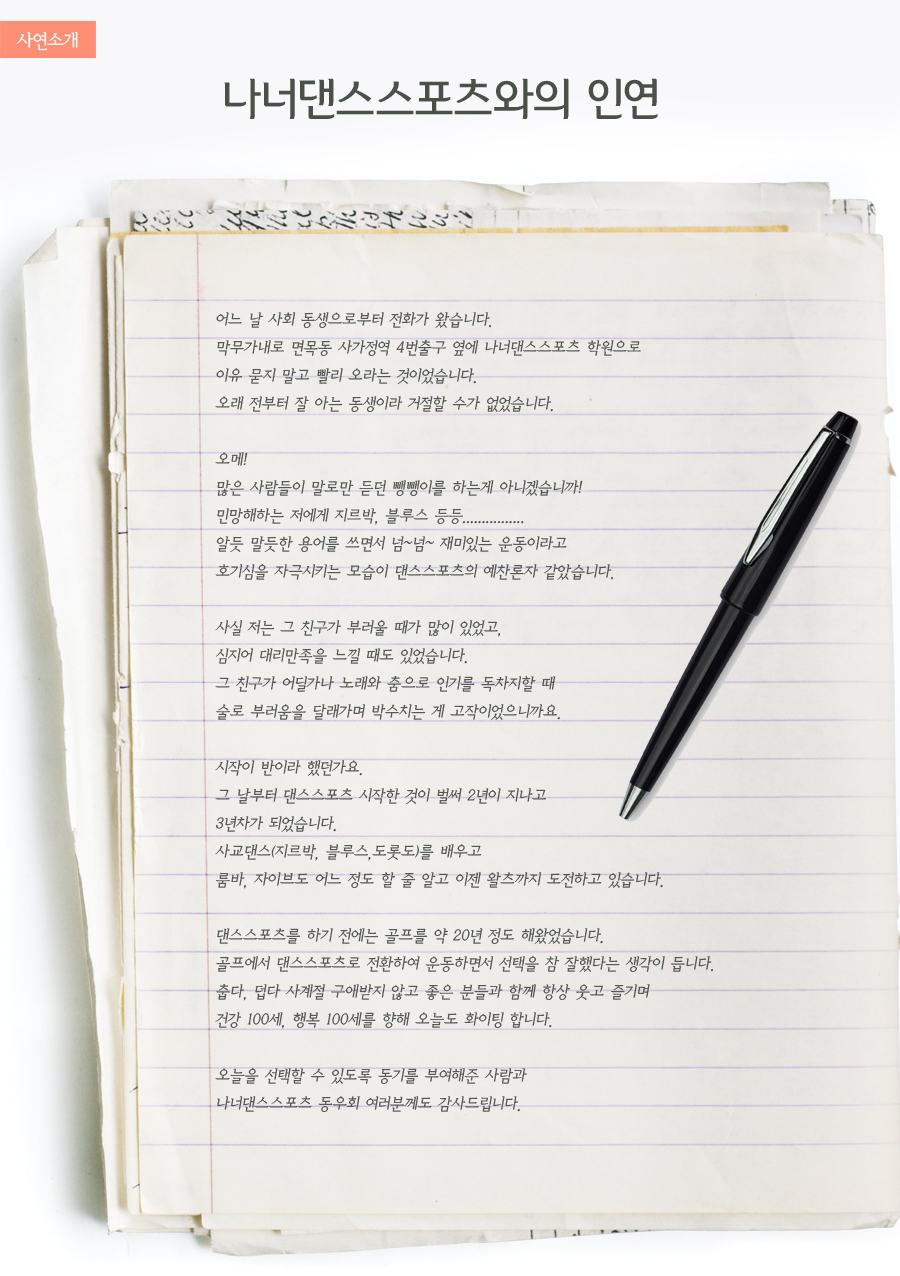 사연소개
나너댄스스포츠와의 인연
어느 날 사회 동생으로부터 전화가 왔습니다.
막무가내로 면목동 사가정역 4번출구 옆에 나너댄스스포츠 학원으로
이유 묻지 말고 빨리 오라는 것이었습니다.
오래 전부터 잘 아는 동생이라 거절할 수가 없었습니다.
오메!
많은 사람들이 말로만 듣던 뺑뺑이를 하는게 아니겠습니까!
민망해하는 저에게 지르박, 블루스 등등................
알듯 말듯한 용어를 쓰면서 넘~넘~ 재미있는 운동이라고
호기심을 자극시키는 모습이 댄스스포츠의 예찬론자 같았습니다.
사실 저는 그 친구가 부러울 때가 많이 있었고,
심지어 대리만족을 느낄 때도 있었습니다.
그 친구가 어딜가나 노래와 춤으로 인기를 독차지할 때
술로 부러움을 달래가며 박수치는 게 고작이었으니까요.
시작이 반이라 했던가요.
그 날부터 댄스스포츠 시작한 것이 벌써 2년이 지나고
3년차가 되었습니다.
사교댄스(지르박, 블루스,도롯도)를 배우고
룸바, 자이브도 어느 정도 할 줄 알고 이젠 왈츠까지 도전하고 있습니다.
댄스스포츠를 하기 전에는 골프를 약 20년 정도 해왔었습니다.
골프에서 댄스스포츠로 전환하여 운동하면서 선택을 참 잘했다는 생각이 듭니다.
춥다, 덥다 사계절 구애받지 않고 좋은 분들과 함께 항상 웃고 즐기며
건강 100세, 행복 100세를 향해 오늘도 화이팅 합니다.
오늘을 선택할 수 있도록 동기를 부여해준 사람과
나너댄스스포츠 동우회 여러분께도 감사드립니다.